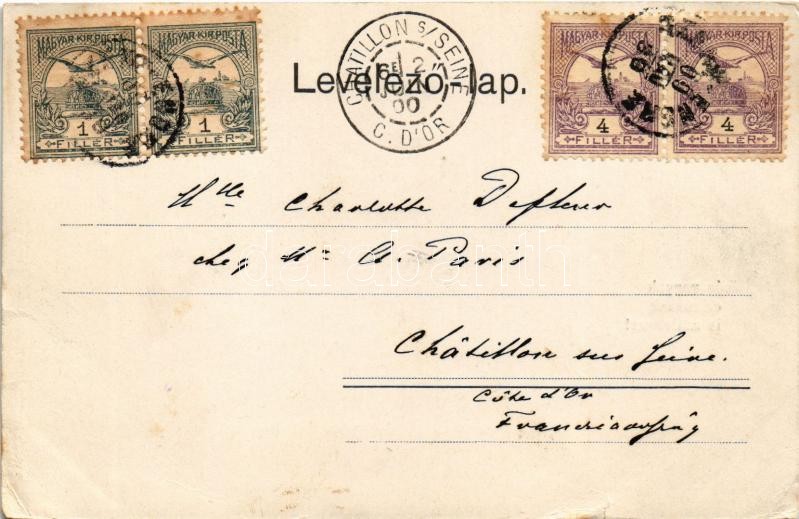 MAGYAR·KIR·POSTA MAGYAR·KIR·POSTA MAGYAR·KIR·POSTA MAGYAR·KIR·POSTA
1 1 4 4
FILLÉR FILLÉR FILLÉR FILLÉR
CHATILLON S/ SEINE
00
C. D'OR
Levelező-lap.
Mlle Charlotte
chez Mr A. Paris
darabanth
Châtillon sur Seine.
Côte d'Or
Franciaország